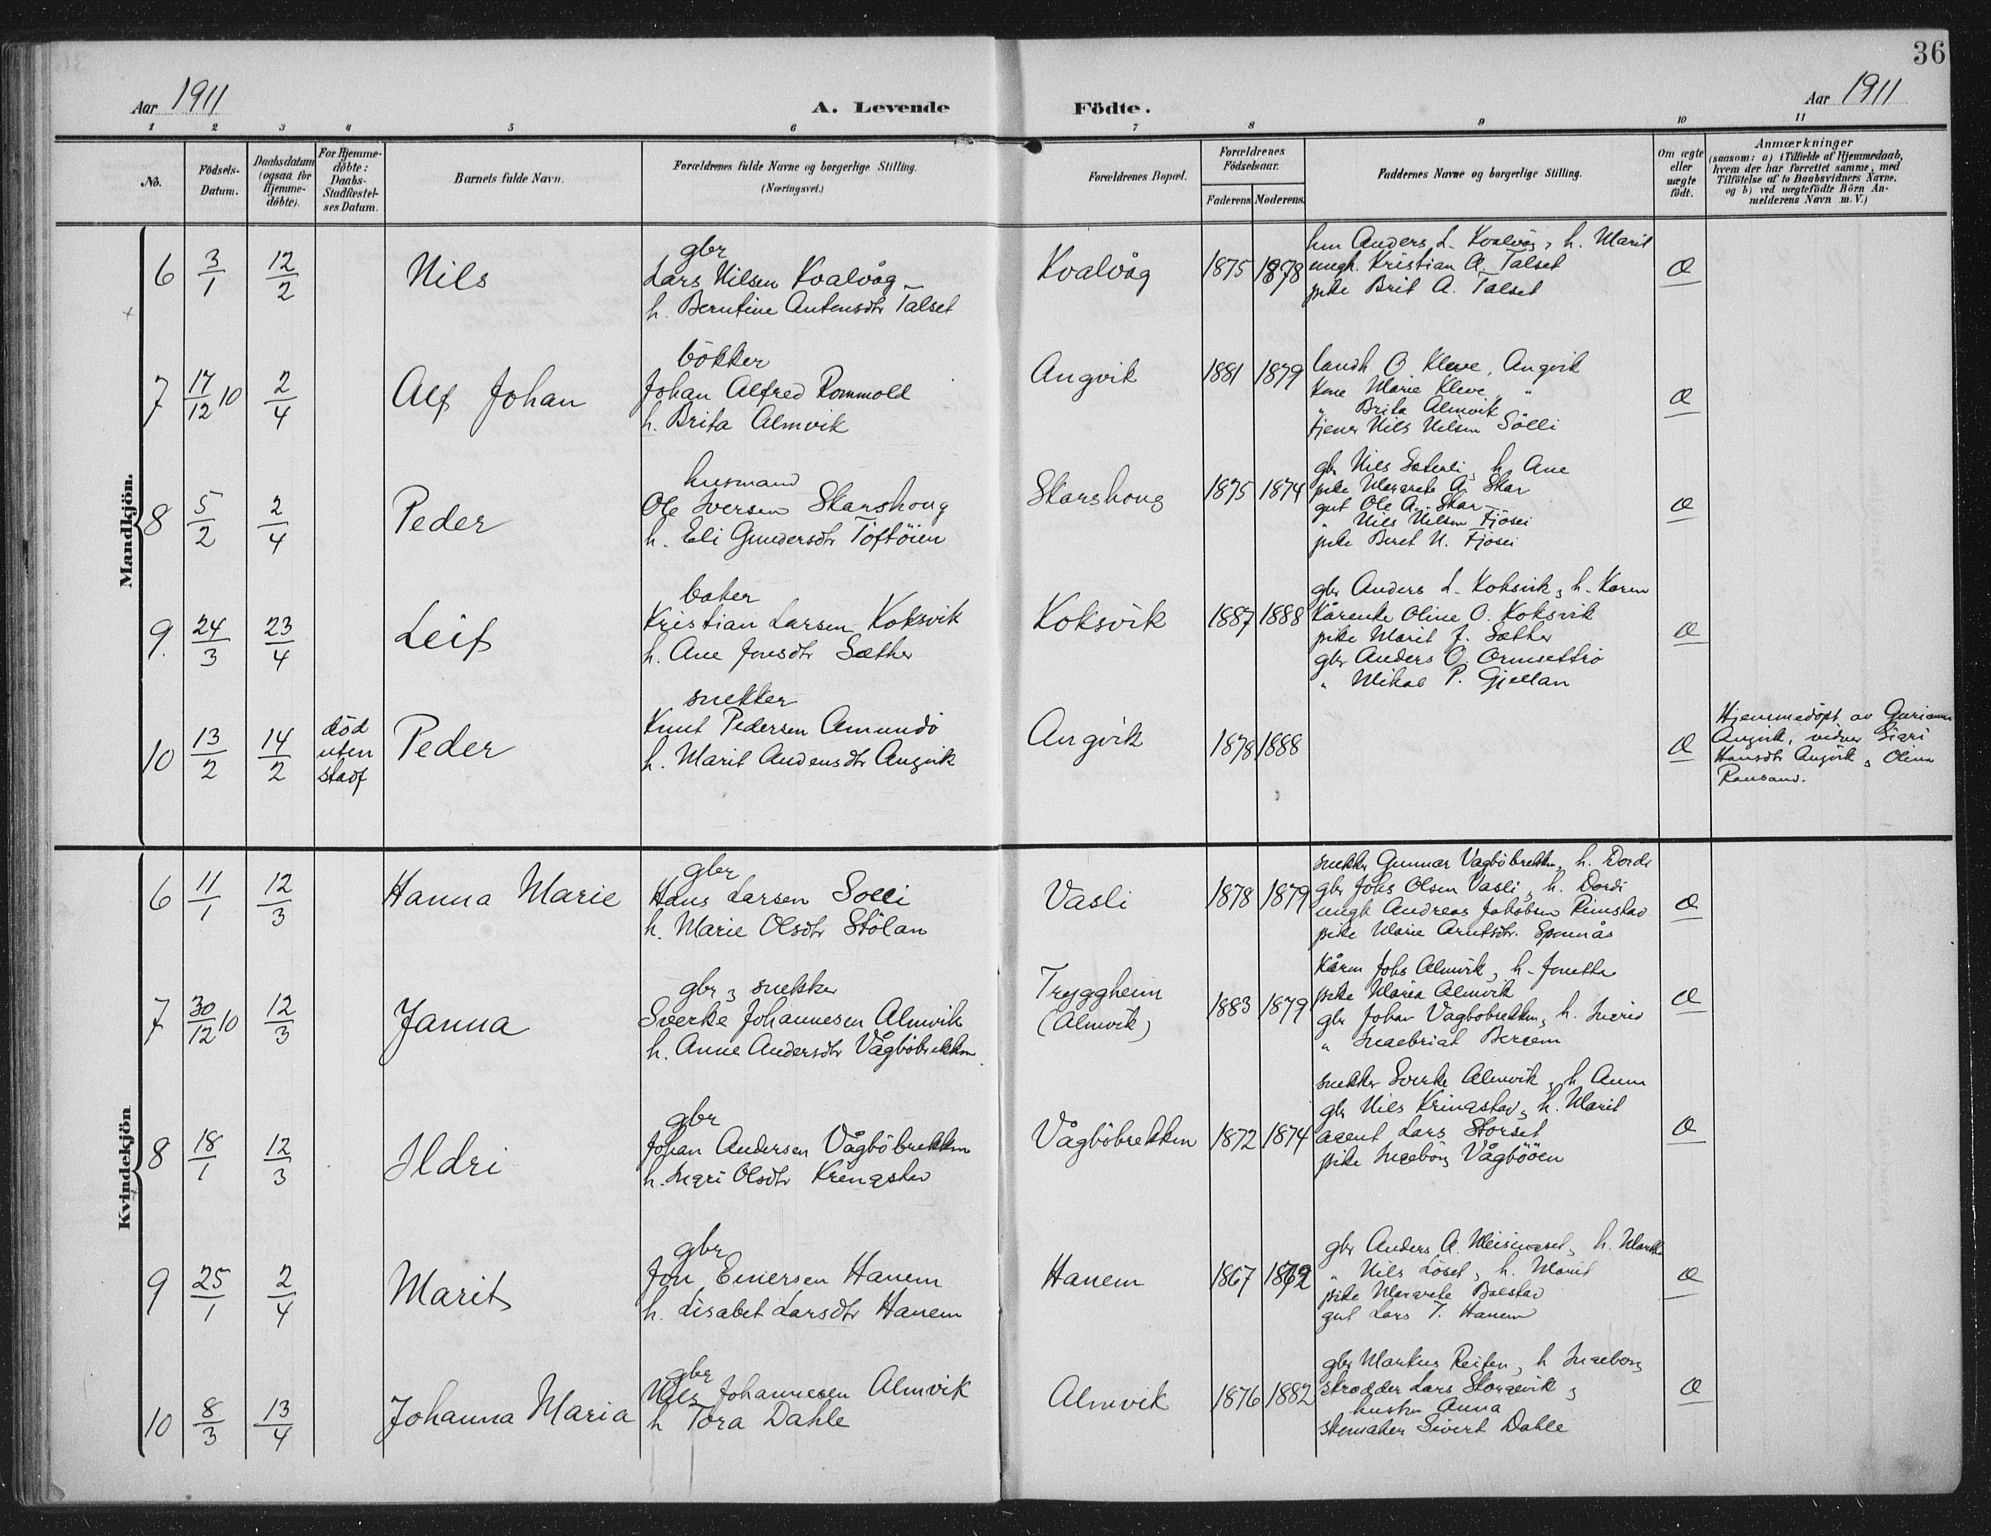 36
Aar 1911
A. Levende Födte.
Aar 1911
1 2 3 4 5 6 7 8 9 10 11
No.
Födsels-Datum.
Daabsdatum (ogsaa for Hjemme-döbte).
For Hjemme-döbte: Daabs-Stadfæstel-ses Datum.
Barnets fulde Navn.
Forældrenes fulde Navne og borgerlige Stilling.
(Næringsvei.)
Forældrenes Bopæl.
Forældrenes Födselsaar.
Faderens. Moderens.
Faddernes Navne og borgerlige Stilling.
Om ægte eller uægte födt.
Anmærkninger
(saasom: a) i Tilfælde af Hjemmedaab,
hvem der har forrettet samme, med
Tilföielse af to Daabsvidners Navne.
og b) ved uægtefödte Börn An-
melderens Navn m. V.)
Mandkjön.
6 3/1 12/2 Nils
gbr
Lars Nilsen Kvalvåg
h. Berntine Antensdtr Talset
Kvalvåg 1875 1878
Anders L. Kvalvåg, h. Marit
ungk. Kristian A. Talset
pike Brit A. Talset
Æ
7 17/12 10 2/4 Alf Johan
bökker
Johan Alfred Rommold
h. Brita Almvik
Angvik 1881 1879
landh. O. Kleve, Angvik
kone Marie Kleve "
" Brita Almvik
tjener Nils Nilsen Sölli
Æ
8 5/2 2/4 Peder
husmand
Ole Iversen Skarshoug
h. Eli Gundersdtr Töftöien
Skarshoug 1875 1874
gbr Nils Sæterli, h. Ane
pike Margrete A. Skar
gut Ole A. Skar
" Nils Nilsen Fjösei
pike Beret N. Fjösei
Æ
9. 24/3 23/4 Leif
baker
Kristian Larsen Koksvik
h. Ane Jonsdtr Sæther
Koksvik 1887 1888
gbr Anders L. Koksvik, h. Karen
Kårenke Oline O. Koksvik
pike Marit J. Sæther
gbr Anders O. Ormsettrö
" Mikal P. Gjellan
Æ
10 13/2 14/2 död uten stadf Peder
snekker
Knut Pedersen Amundö
h. Marit Andersdtr Angvik
Angvik 1878 1888
Æ
Hjemmedöpt av Gurianna
Angvik, vidner Sigri
Hansdtr Angvik, Olina
Ransand.
Kvindekjön
6 11/1 12/3 Hanna Marie
gbr
Hans Larsen Solli
h. Marie Olsdtr Stölan
Vasli 1878 1879
snekker Gunnar Vågböbrekken, h. Dordi
gbr Johs Olsen Vasli, h. Dordi
ungk Andreas Jakobsen Rimstad
pike Marie Arntsdtr.
Æ
7 30/12 10 12/3 Janna
gbr, snekker
Sverke Johannesen Almvik
h. Anne Andersdtr Vågböbrekken
Tryggheim
(Almvik)
1883 1879
Johs Almvik, h. Jonetta
pike Maria Almvik
gbr Johan Vågböbrekken, h. Ingrid
" Ingebrigt Bergem
Æ
8 18/1 12/3 Ildri
gbr
Johan Andersen Vågböbrekken
h. Ingri Olsdtr Kringstad
Vågböbrekken 1872 1874
snekker Sverke Almvik, h. Anne
gbr Nils Kringstad, h. Marit
agent Lars Storset
pike Ingebörg Vågbööen
Æ
9 25/1 2/4 Marit
gbr
Jon Einersen Hanem
h. Lisabet Larsdtr Hanem
Hanem 1867
gbr Anders A. Meisingset, h. Marith
" Nils Löset, h. Marit
pike Margrete Bolstad
gut Lars T. Hanem
Æ
10 8/3 13/4 Johanna Maria
gbr
Nils Johannesen Almvik
h Tora Dahle
Almvik 1876 1882
gbr Markus Reiten, h Ingeborg
skrædder Lars Storgevik,
hustru Anna
skomaker Sivert Dahle
Æ